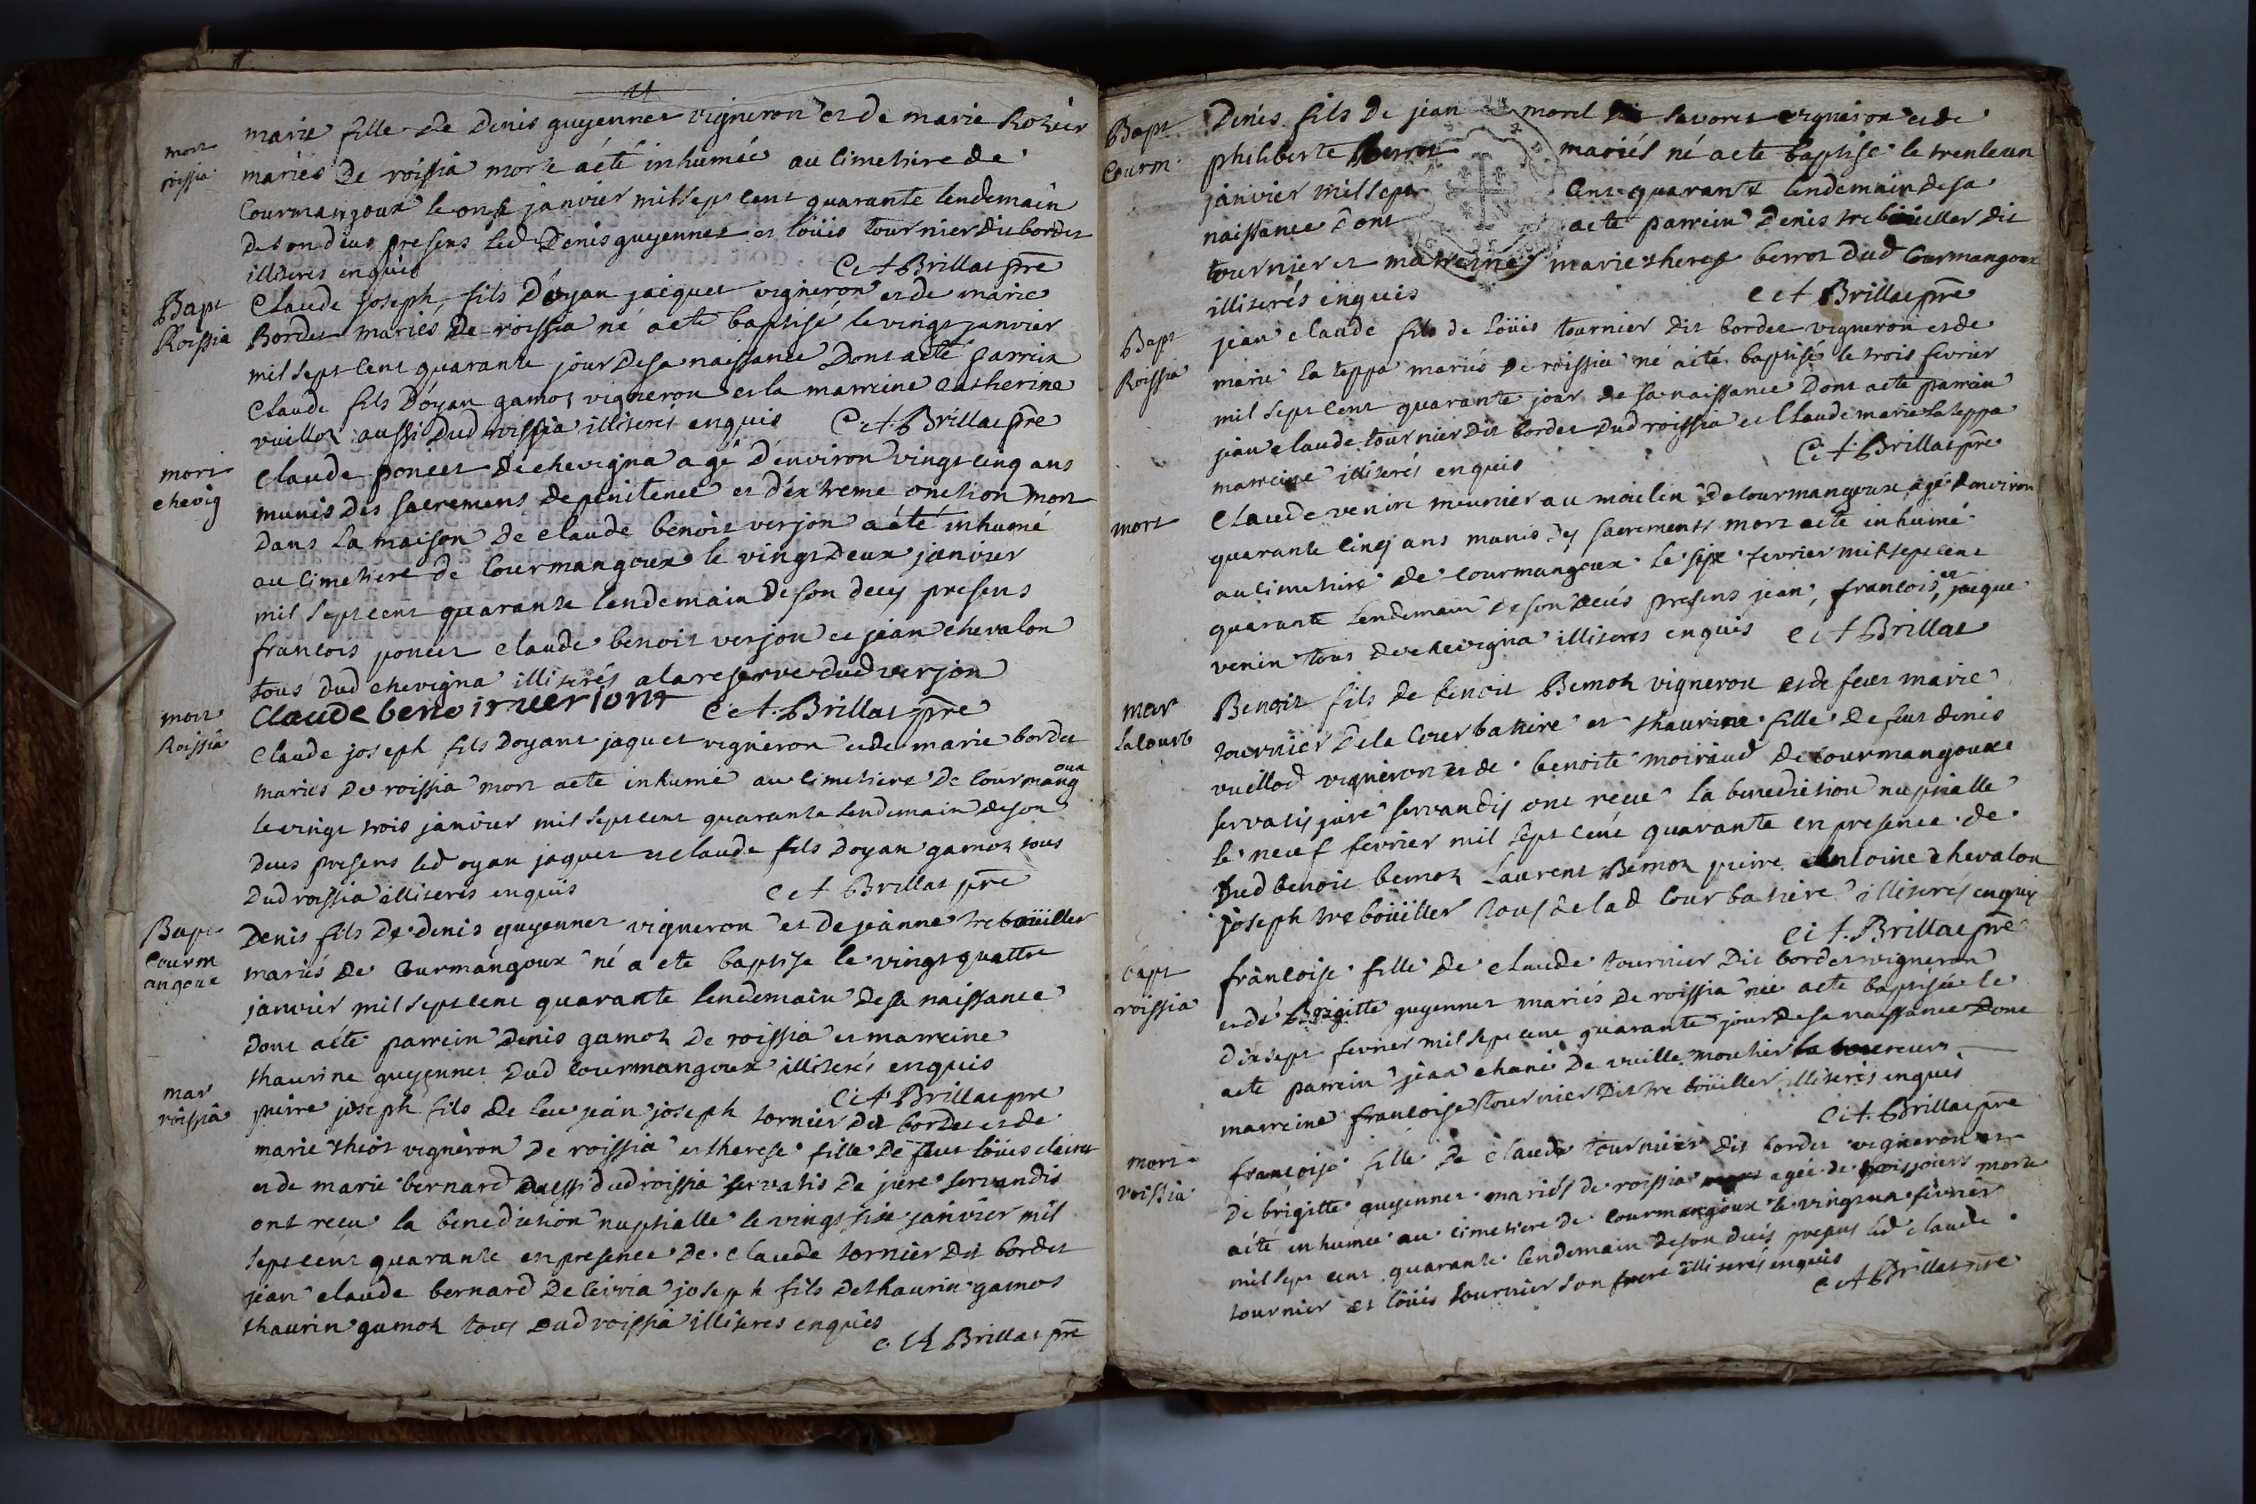 mort
roissia
marie fille de Denis guyennet vigneron et de marie Rozier
mariés de roissia morte a été inhumée au cimetiere de
Courmangoux le onse janvier mil sept cent quarante lendemain
de son deces presens led Denis guyennet et loüis tournier dit bordet
illiterés enquis C ct A Brillat pre
Bapt
Roissia
Claude joseph fils d'oyan jacquet vigneron et de marie
Bordet mariés de roissia né a ete baptisé le vingt janvier
mil sept cent quarante jour de sa naissance dont acte parrein
Claude fils d'oyan gamoz vigneron et la marreine catherine
vuilloz aussi dud roissia illiterés enquis C ct A Brillat pre
mort
chevig
Claude poncet de chevigna agé d'environ vingt cinq ans
munis des sacremens de penitence et d'extreme onction mort
dans la maison de claude benoit verjon a été inhumé
au cimetiere de Courmangoux le vingt deux janvier
mil sept cent quarante lendemain de son deces presens
francois poncet claude benoit verjon et jean chevalon
tous dud chevigna illiterés a la reserve dud verjon
Claude benoit veriont C ct A Brillat pre
mort
Roissia
Claude joseph fils d'oyant jaquet vigneron et de marie bordet
mariés de roissia mort a ete inhumé au cimetiere de Courmangoux
le vingt trois janvier mil sept cent quarante lendemain de son
deces presens led oyan jaquet et claude fils d'oyan gamoz tous
dud roissia illiterés enquis C ct A Brillat pre
Bapt
Courm
angoux
Denis fils de Denis guyennet vigneron et de jeanne treboüillet
mariés de Courmangoux né a ete baptisé le vingt quattre
janvier mil sept cent quarante lendemain de sa naissance
dont acte parrein Denis gamoz de roissia et marreine
thaurine guyennet dud Courmangoux illiterés enquis
C ct A Brillat pre
mar
roissia
pierre joseph fils de feu jean joseph tornier dit bordet et de
marie thiot vigneron de roissia et therese fille de feut loüis clairet
et de marie bernard aussi dud roissia servatis de jure servandis
ont recu la benediction nuptialle le vingt six janvier mil
sept cent quarante en presence de claude tornier dit bordet
jean claude bernard de Ceivria joseph fils de thaurin gamoz
thaurin gamoz tous dud roissia illiterés enquis
C ct A Brillat pre
Bapt
Courm
Denis fils de jean morel dit savoret vigneron et de
philiberte berrot mariés né a ete baptisé le trente un
janvier mil sept cent quarante lendemain de sa
naissance dont acte parrein Denis treboüillet dit
tournier et marreine marie therese berrot dud Courmangoux
illiterés enquis C ct A Brillat pre
Bapt
Roissia
jean claude fils de loüis tournier dit bordet vigneron et de
marie la teppa mariés de roissia né a été baptisé le trois fevrier
mil sept cent quarante jour de sa naissance dont acte parrein
jean claude tournier dit bordet dud roissia et Claude marie la teppa
marreine illiterés enquis C ct A Brillat pre
mort
Claude venin meunier au moulin de Courmangoux agé d'environ
quarante cinq ans munis des sacrements mort a ete inhumé
au cimetiere de Courmangoux le six fevrier mil sept cent
quarante lendemain de son deces presens jean, francois, et jacque
venin tous de chevigna illiterés enquis C ct A Brillat
mar
la Courb
Benoit fils de benoit Bemoz vigneron et de feue marie
tournier de la Courbatiere et thaurine fille de feut denis
vuillod vigneron et de benoite moiraud de Courmangoux
servatis jure servandis ont recue la benediction nuptialle
le neuf fevrier mil sept cent quarante en presence de
dud benoit bemoz Laurent Bemoz pierre antoine chevalon
joseph trebouiller tous de lad Courbatiere illiterés enquis
C ct A Brillat pre
bapt
roissia
francoise fille de claude tournier dit bordet vigneron
et de Brigitte guyennet mariés de roissia née a ete baptisée le
dix sept fevrier mil sept cent quarante jour de sa naissance dont
acte parrein jean chanel de vieille moutier
marreine francoise tournier dit treboüiller illiterés enquis
C ct A Brillat pre
mort
roissia
francoise fille de claude tournier dit bordet vigneron et
de brigitte guyennet mariés de roissia agée de trois jours morte
a éte inhumée au cimetiere de Courmangoux le vingt un fevrier
mil sept cent quarante lendemain de son deces presens led claude
tournier et loüis tournier son frere illiterés enquis
C ct A Brillat pre